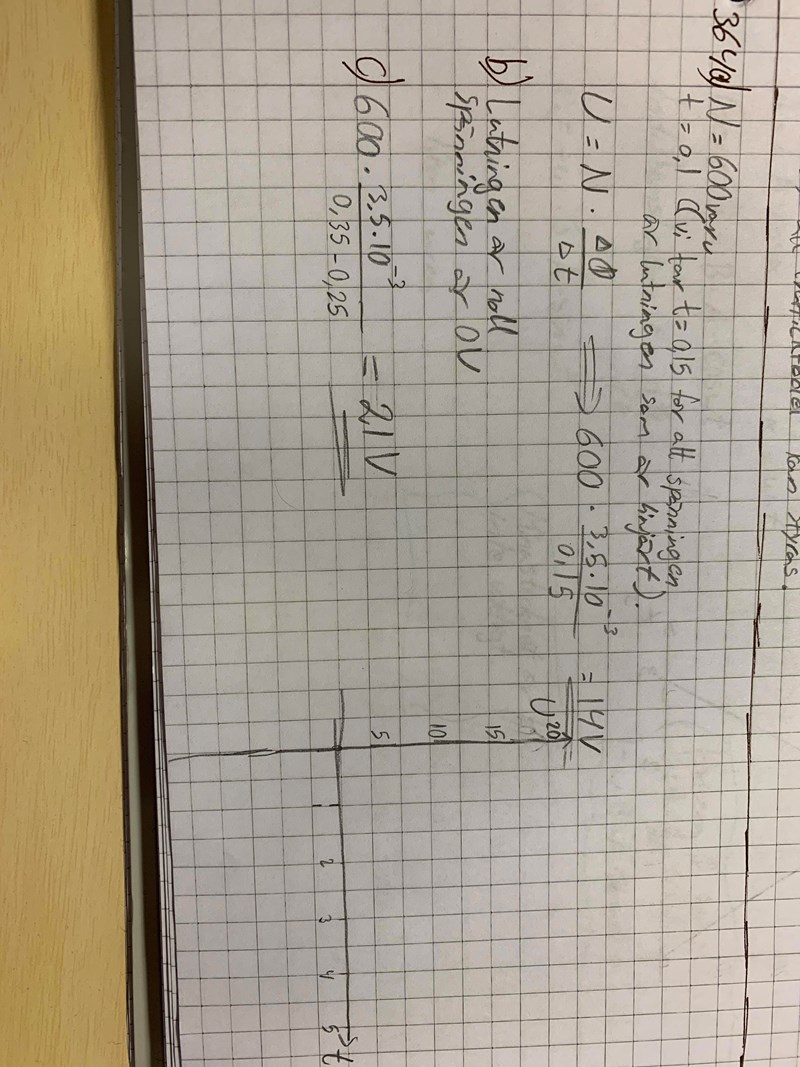 kan styras.
364 a) N = 600 varv
t = 0,1 (vi tar t = 0,15 för att spänningen
är lutningen som är linjärt).
U = N · ΔΦ/Δt ⟹ 600 · 3,5·10⁻³/0,15 = 14V
b) Lutningen är noll
spänningen är 0V
c) 600 · 3,5·10⁻³/0,35-0,25 = 21V
U
20
15
10
5
1 2 3 4 5 t